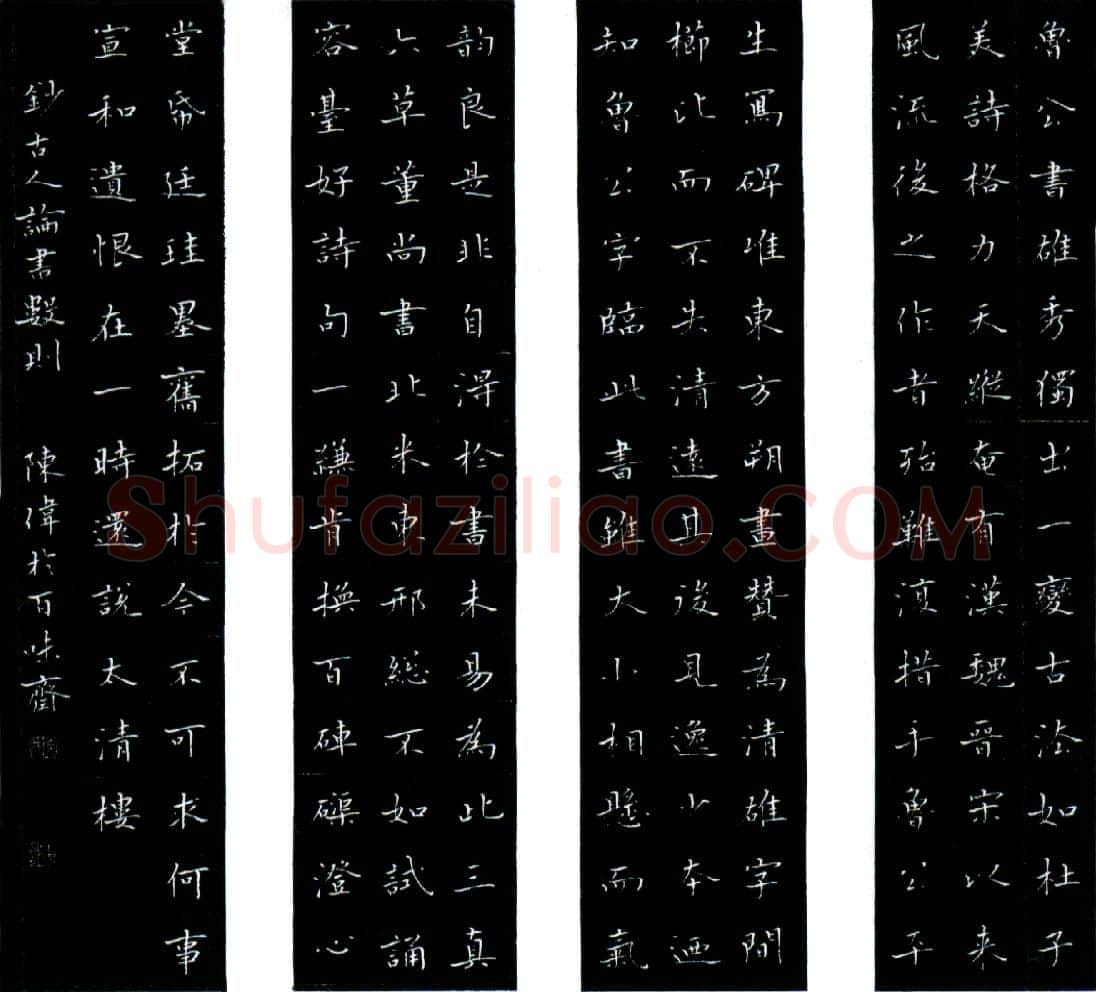 魯公書雄秀獨出一變古法如杜子
美詩格力天縱奄有漢魏晉宋以来
風流後之作者殆難復措手魯公平
生寫碑唯東方朔畫贊為清雄字間
櫛比而不失清遠其後見逸少本廼
知魯公字臨此書雖大小相懸而氣
韵良是非自得於書未易為此三真
六草董尚書北米東邢總不如試誦
容臺好詩句一縑肯換百硨磲澄心
堂帋廷珪墨舊拓於今不可求何事
宣和遺恨在一時還說太清樓
鈔古人論書數則 陳偉於百味齋
Shufaziliao.COM